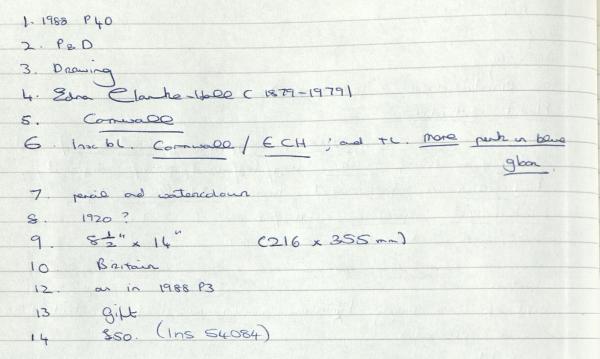 1. 1988 P40
2. P&D
3. Drawing
4. Edna Clarke-Hall (1879-1979)
5. Cornwall
6 Insc bl. Cornwall / ECH ; and tl. more pink in blue
7 pencil and watercolour
8. 1920 ?
9. 8 1/2" x 14" (216 x 355 mm)
10 Britain
12. as in 1988 P3
13 gift
14 $50. (Ins 54084)